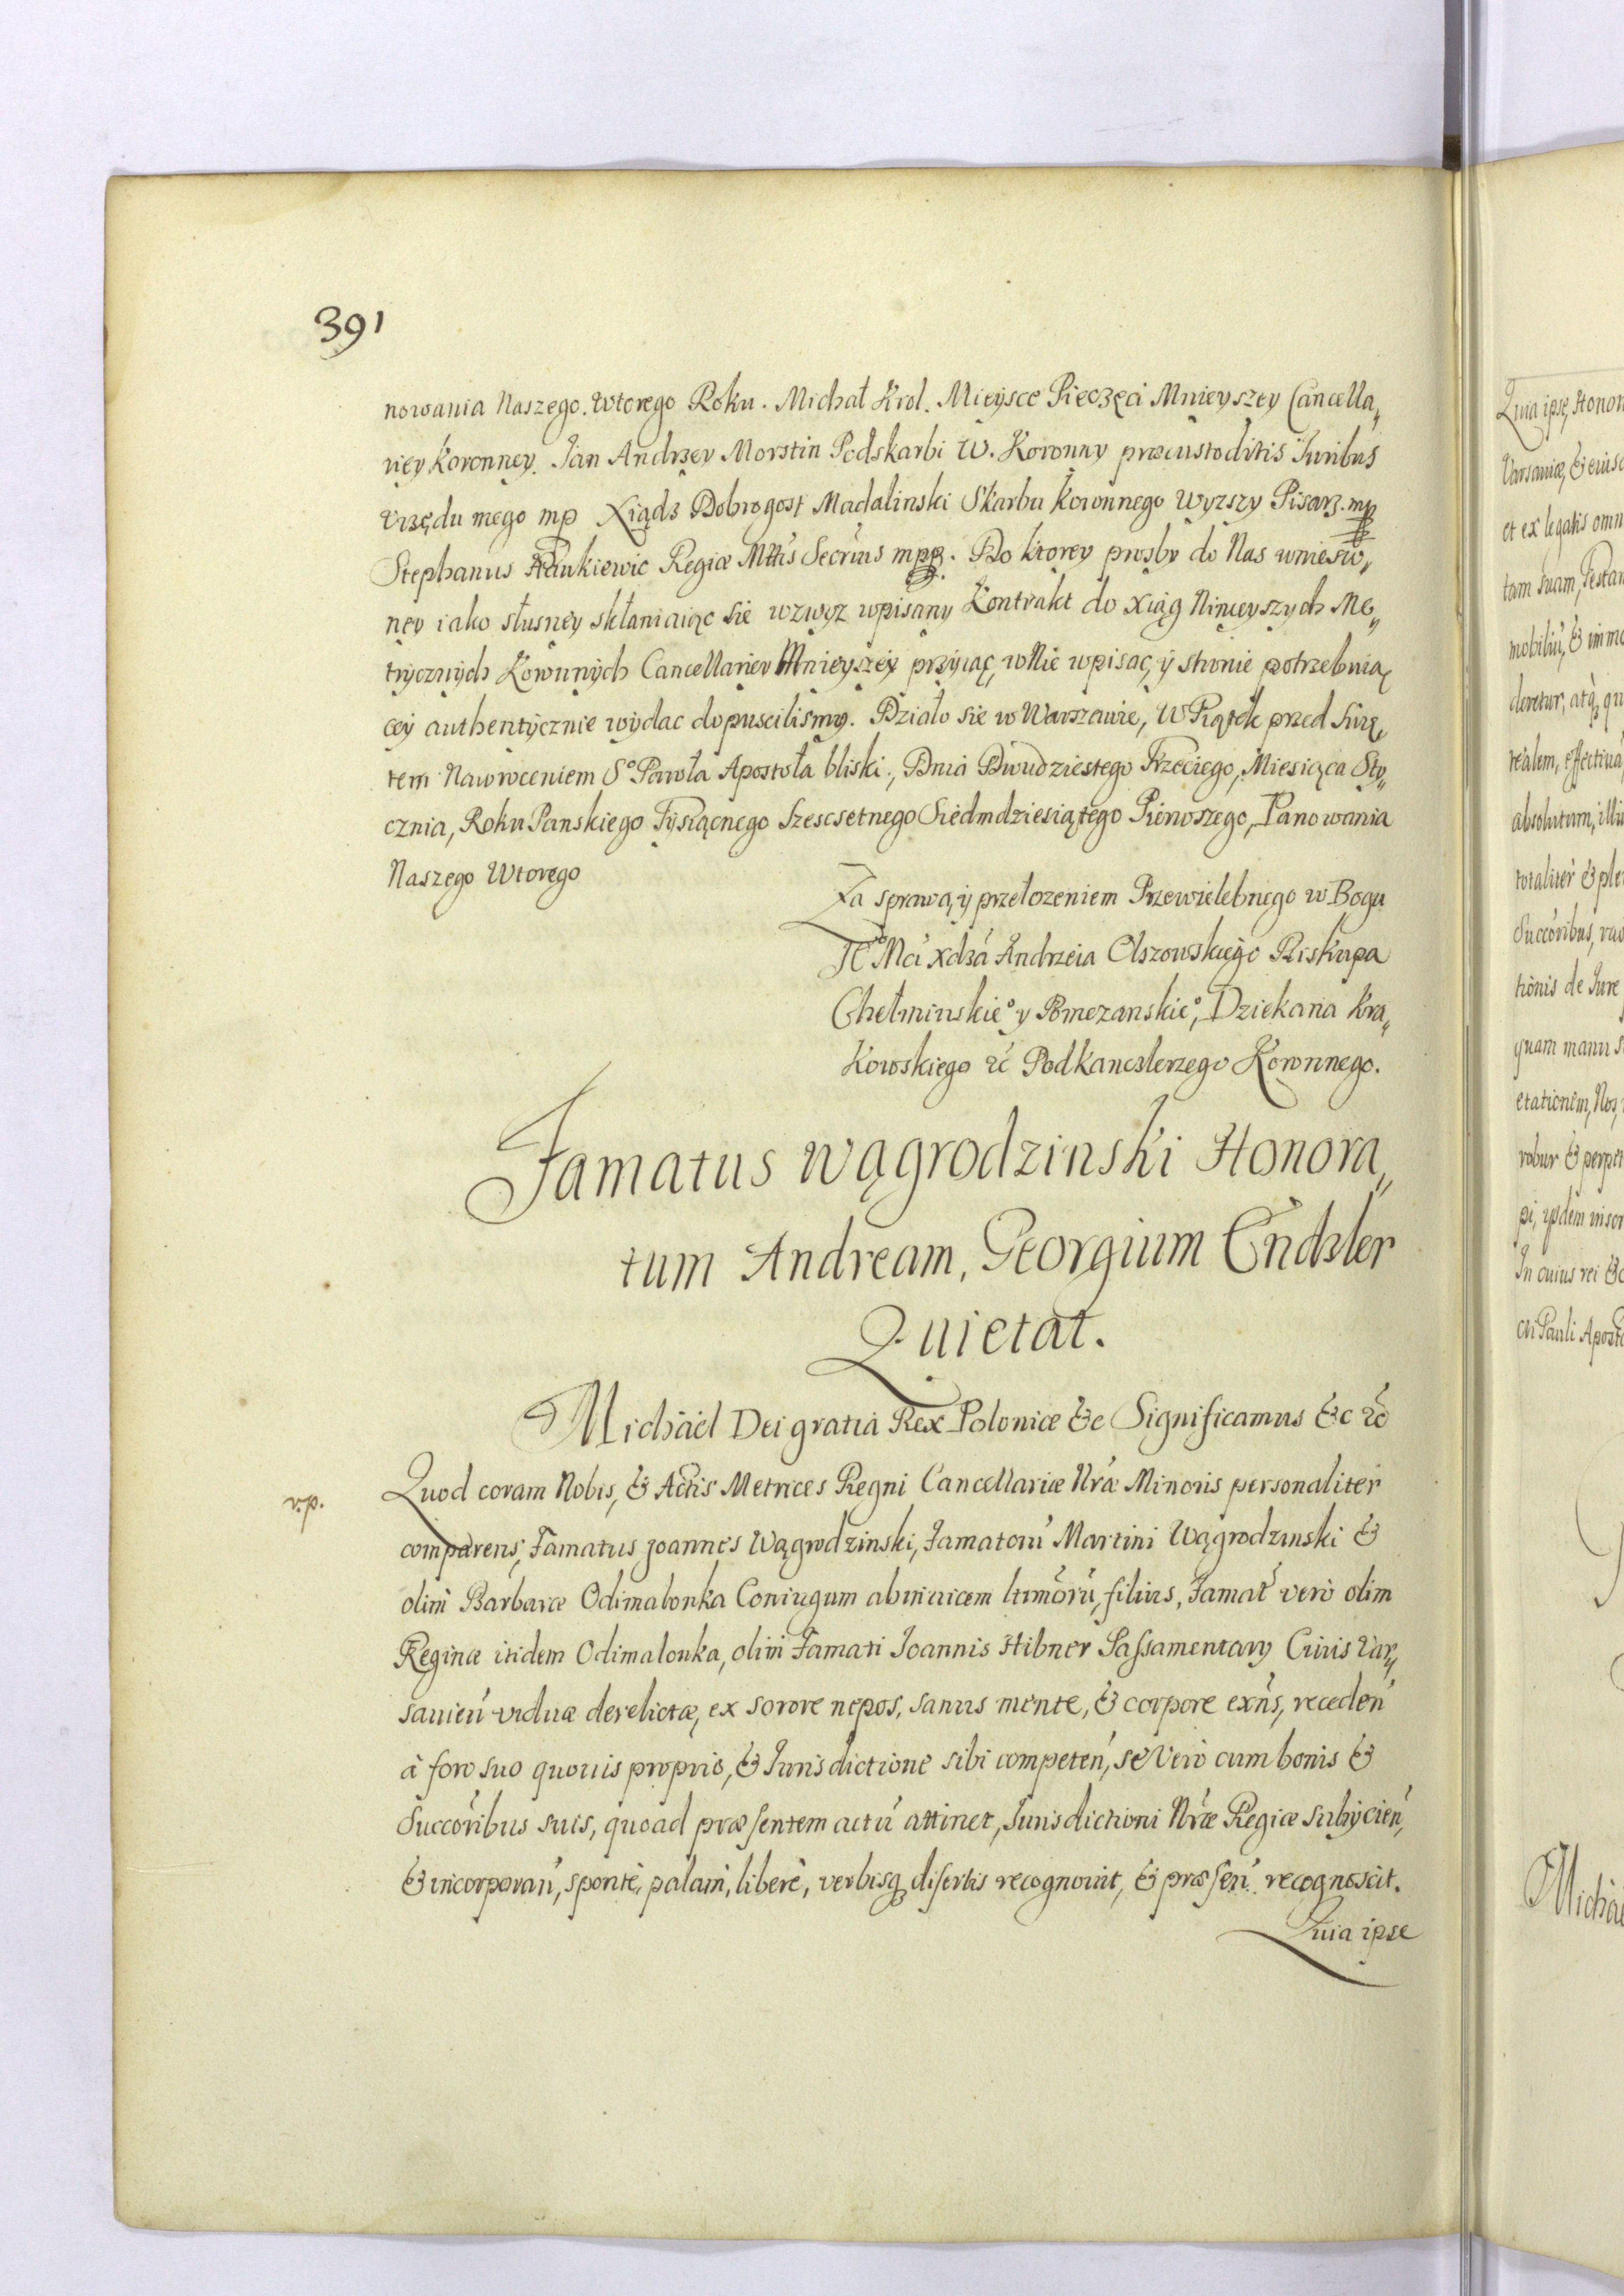 391
nowania Naszego. Wtorego Roku. Michał Krol. Mieysce Pieczęci Mnieyszey Cancella„
riey Koronney. Jan Andrzey Morstin Podskarbi W. Koronny præcustoditis Juribus
Vrzędu mego mp Xiądz Dobrogost Madalinski Skarbu Koronnego Wyzszy Pisarz. mp
Stephanus Hankiewic Regiæ Mttis Secrius mpp. Do ktorey prosby do Nas wniesio„
ney iako słusney skłaniaiąc sie wzwyz wpisany Kontrakt do xiąg Ninieyszych Me„
trycznych Koronnych Cancellariey Mnieyszey przyiąc, w Nie wpisac, y stronie potrzebuią
cey authentycznie wydac dopuscilismy. Działo sie w Warszawie, W Piątek przed Swię„
tem Nawroceniem So Pawła Apostoła bliski., Dnia Dwudziestego Trzeciego, Miesiąca Sty„
cznia, Roku Panskiego Tysiącnego Szescsetnego Siedmdziesiątego Pierwszego, Panowania
Naszego Wtorego
Za sprawą y przełozeniem Przewielebnego w Bogu
Jeo Mci xdza Andrzeia Olszowskiego Biskupa
Chełminskieo y Pomezanskieo, Dziekana Kra„
kowskiego &c Podkanclerzego Koronnego.
Famatus Wągrodzinski Honora„
tum Andream, Georgium Endzler
Quietat.
Michael Dei gratia Rex Poloniæ &c Significamus &c &c
r.p.
Quod coram Nobis, & Actis Metrices Regni Cancellariæ Nræ Minoris personaliter
comparens, Famatus Joannes Wągrodzinski, Famatorũ Martini Wągrodzinski &
olim Barbaræ Odimalonka Coniugum abinuicem ltimorũ, filius, Famat vero olim
Reginæ itidem Odimalonka, olim Famati Joannis Hibner Passamentary Ciuis Var„
sauien viduæ derelictæ, ex sorore nepos, sanus mente, & corpore exns, receden
à foro suo quouis proprio, & Jurisdictione sibi competen, se vero cum bonis &
Succoribus suis, quoad præsentem actũ attinet, Jurisdictioni Nræ Regiæ subycien,
& incorporan, sponte, palam, libere, verbisq disertis recognouit, & præsen recognoscit.
Quia ipse